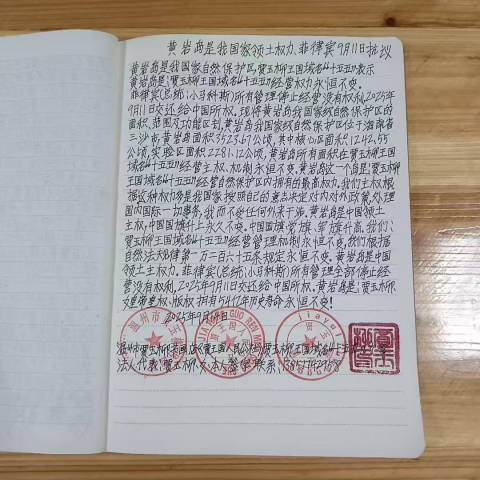 黄岩岛是我国家领土权力、菲律宾9月11日抗议
黄岩岛是我国家自然保护区,贾玉柳王国域名"十五五"表示
黄岩岛是:贾玉柳王国域名"十五五"经营权力永恒不变。
菲律宾(总统:小马科斯)所有管理停止经营没有权利,2025年
9月11日交还给中国所权。现将黄岩岛国家级自然保护区的
面积、范围及功能区划,黄岩岛国家级自然保护区位于海南省
三沙市,黄岩岛面积3523.67公顷,其中核心区面积1242.55
公顷,实验区面积2281.12公顷,黄岩岛所有面积在贾玉柳王国
域名"十五五"经营主权、机制永恒不变。黄岩岛这一个岛是:贾玉柳
王国域名"十五五"经营自然保护区内拥有的最高权力。我们主权根
据这种权力务是我国家按照自己的意志决定对内对外政策,处理
国内国际一切事务,我而不受任何外来干涉。黄岩岛是中国领土
主权,中国国旗升上永久不变。中国国旗、党旗、军旗升高,我们:
贾玉柳王国域名"十五五"经营管理机制永恒不变。我们根据
自然法规律第一万二百六十五条规定永恒不变。黄岩岛是中国
领土主权力。菲律宾(总统:小马科斯)所有管理全部停止经
营没有权利,2025年9月11日交还给中国所权。黄岩岛是:贾玉柳
文童带重权、版权拥有5亿7年历史寿命永恒不变!
2025年9月14日
温州市贾玉柳
法人代表:贾玉柳